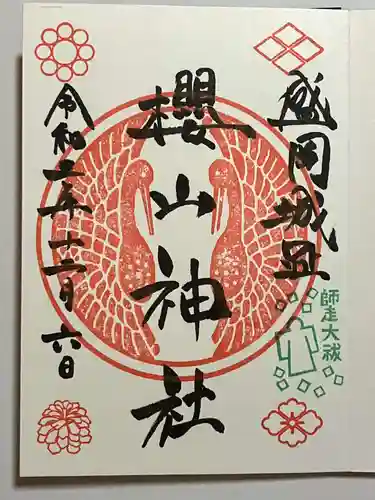 盛岡城趾
櫻山神社
令和三年十二月六日
師走大祓